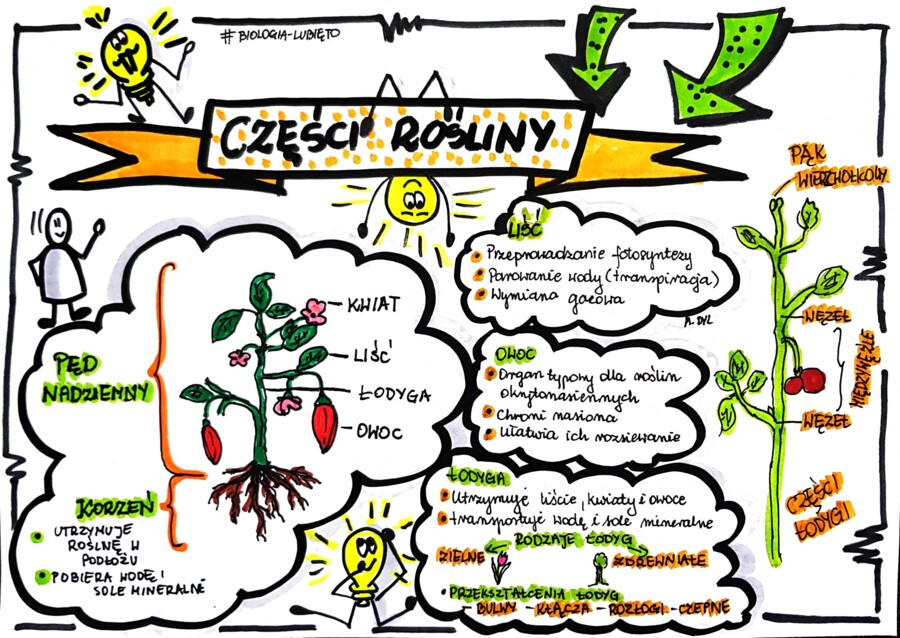 # BIOLOGIA-LUBIĘTO
CZĘŚCI ROŚLINY
PĄK
WIERZCHOŁKOWY
LIŚĆ
Przeprowadzanie fotosyntezy
Parowanie wody (transpiracja)
Wymiana gazowa
A. DYL
KWIAT
LIŚĆ
ŁODYGA
OWOC
PĘD
NADZIEMNY
KORZEŃ
UTRZYMUJE
ROŚLNĘ W
PODŁOŻU
POBIERA WODĘ I
SOLE MINERALNE
OWOC
Organ typowy dla roślin
okrytonasiennych
Chroni nasiona
Ułatwia ich rozsiewanie
WĘZEŁ
MIĘDZYWĘŹLE
WĘZEŁ
CZĘŚCI
ŁODYGI
ŁODYGA
Utrzymuje liście, kwiaty i owoce
transportuje wodę i sole mineralne
RODZAJE ŁODYG
ZIELNE
ZDREWNIAŁE
PRZEKSZTAŁCENIA ŁODYG
- BULWY - KŁĄCZA - ROZŁOGI - CZEPNE